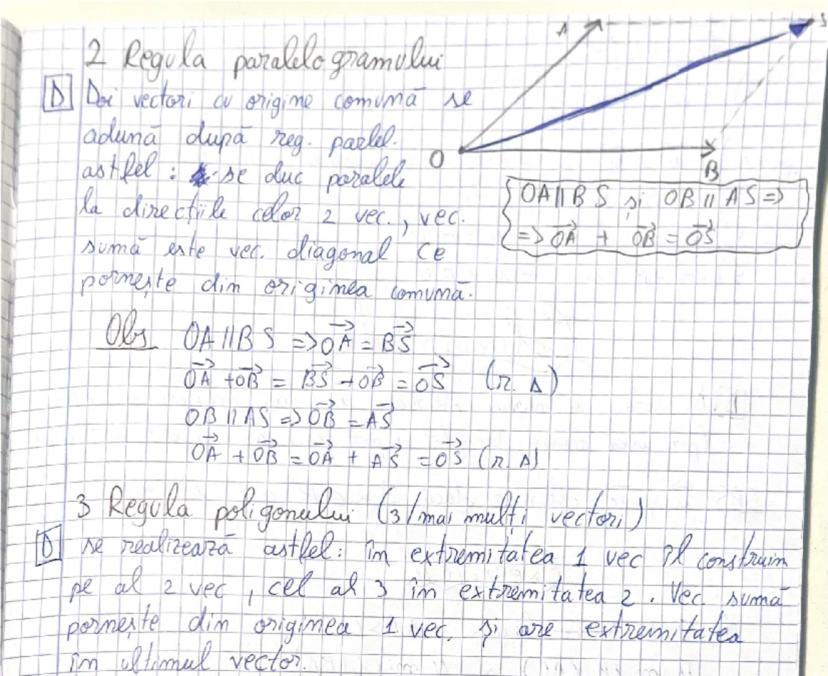 2 Regula paralelogramului
D Doi vectori cu origine comună se
adună după reg. parlel.
astfel: se duc paralele
la direcțiile celor 2 vec., vec.
sumă este vec. diagonal ce
pornește din originea comună.
A S
O B
OA || BS și OB || AS =>
=> OA + OB = OS
Obs OA || BS => OA = BS
OA + OB = BS + OB = OS (r. Δ)
OB || AS => OB = AS
OA + OB = OA + AS = OS (r. Δ)
3 Regula poligonului (3/mai mulți vectori)
D se realizează astfel: în extremitatea 1 vec îl construim
pe al 2 vec, cel al 3 în extremitatea 2. Vec. sumă
pornește din originea 1 vec. și are extremitatea
în ultimul vector.